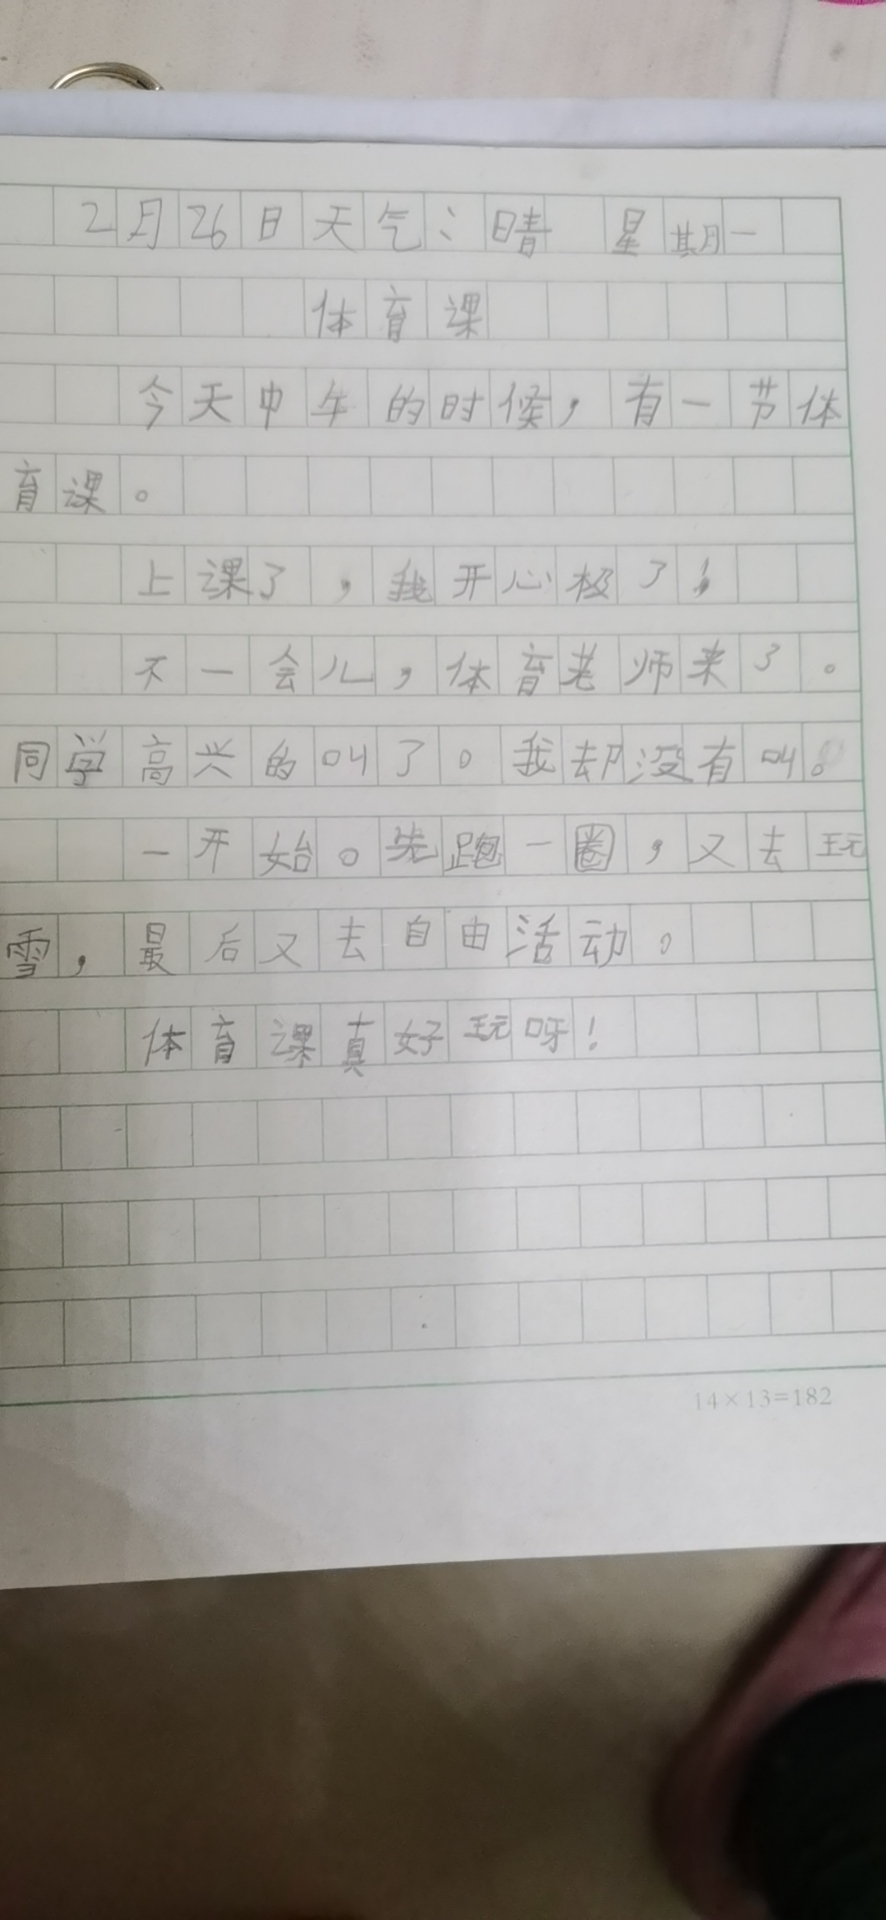 2月26日天气：晴 星期一
体育课
今天中午的时候，有一节体
育课。
上课了，我开心极了！
不一会儿，体育老师来了。
同学高兴的叫了。我却没有叫。
一开始。先跑一圈，又去玩
雪，最后又去自由活动。
体育课真好玩呀！
14×13=182